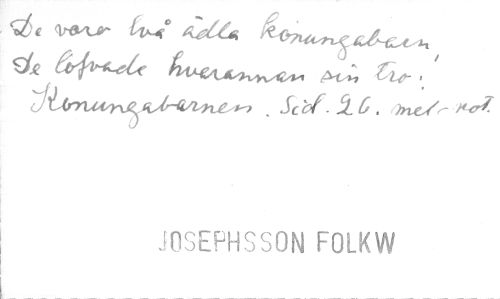 De voro två ädla konungabarn,
De lofvade hvarannan sin tro:
Konungabarnen. Sid. 26. mel-not.
JOSEPHSSON FOLKW